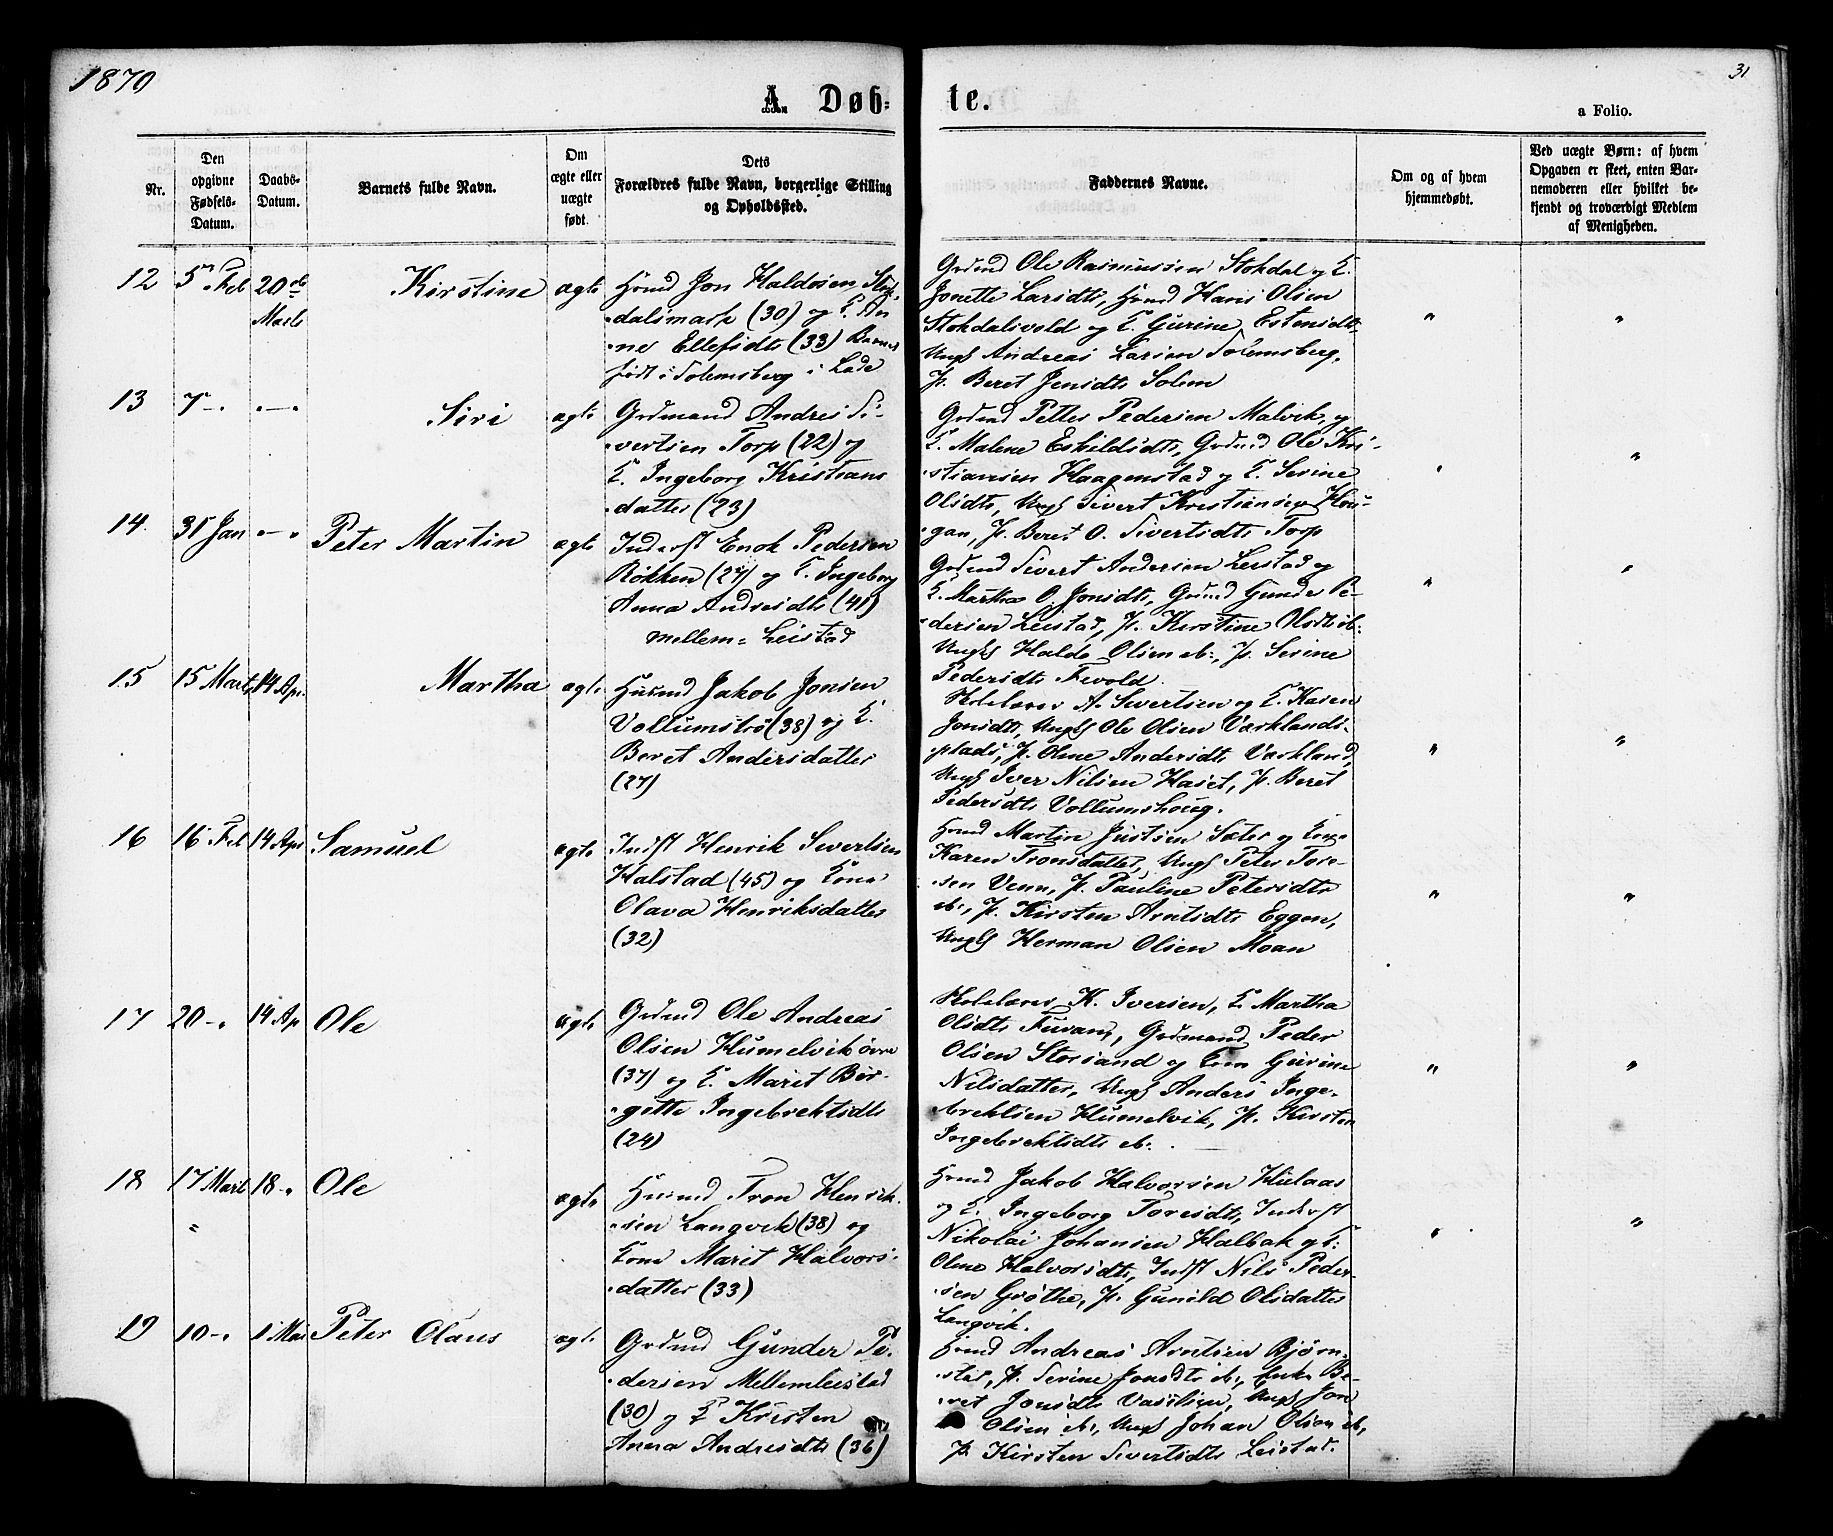 1870
31
A. Døb-
te.
a Folio.
Nr.
Den
opgivne
Fødsels-
Datum.
Daabs-
Datum.
Barnets fulde Navn.
Om
ægte eller
uægte
født.
Dets
Forældres fulde Navn, borgerlige Stilling
og Opholdssted.
Faddernes Navne.
Om og af hvem
hjemmedøbt.
Ved uægte Børn: af hvem
Opgaven er skeet, enten Bar-
nemoderen eller hvilket be-
kjendt og troværdigt Medlem
af Menigheden.
12
5 Feb
20
Marts
Kirstine
ægte
Hmd Jon Haldosen Stok-
dalsmark (30) og K. An-
ne Ellefsdtr (33) Barnet
født i Solemsberg i Lade
Grdmd Ole Rasmussen Stokdal og K.
Jonette Larsdtr, Hmd Hans Olsen
Stokdalsvold og K. Gurine Estensdtr
Ungk Andreas Larsen Solemsberg,
P. Beret Jensdtr Solem
"
"
13
7 - "
" - "
Siri
ægte
Grdmand Andreas Si-
vertsen Torp (22) og
K. Ingeborg Kristians
datter (23)
Grdmd Petter Pedersen Malvik, og
K. Malene Eskildsdtr, Grdmd Ole Kri-
stiansen Haagenstad og K. Serine
Olsdtr, Ungk Sivert Kristiansen Hou-
gan, P. Beret O. Sivertsdtr Torp
"
"
14.
31 Jan
" - "
Peter Martin
ægte
Inderst Enok Pedersen
Røkken (27) og K. Ingeborg
Anna Andresdtr (41)
mellem-Leistad
Grdmd Sivert Andersen Leistad og
K. Martha O. Jonsdtr, Grdmd Gunder Pe-
dersen Leistad, P. Kirstine Olsdtr ib:
Ungk Haldo Olsen ib:, P. Serine
Pedersdtr
"
"
15
15 Marts
14 Apr.
Martha
ægte
Husmd Jakob Jonsen
Vollumstrø (38) og K.
Beret Andersdatter
(27)
Skolelærer A. Sivertsen og K. Karen
Jonsdtr, Ungk Ole Olsen Værklands-
plads, P. Oline Andersdtr Værkland,
Ungk Iver Nilsen Haset, P. Beret
Pedersdtr Vollumshoug.
"
"
16
16 Feb
14 Apr
Samuel
ægte
Indst Henrik Sivertsen
Halstad (45) og Kone
Olava Henriksdatter
(32)
Hmd Martin Justsen Sæter og Kone
Karen Tronsdatter, Ungk Peter Tore-
sen Venn, P. Pauline Petersdtr
ib:, P. Kirsten Arntsdtr Eggen,
Ungk Herman Olsen Moan
"
"
17
20 - "
14 Ap
Ole
ægte
Grdmd Ole Andreas
Olsen Humelvik øvre
(37) og K. Marit Bir-
gitte Ingebrektsdtr
(24)
Skolelærer K. Iversen, K. Martha
Olsdtr Furan, Grdmand Peder
Olsen Storsand og Kone Gurine
Nilsdatter, Ungk Anders Inge-
brektsen Humelvik, P. Kirsten
Ingebrektsdtr ib:
"
"
18
17 Marts
"
18 - "
Ole
ægte
Husmd Tron Henrik-
sen Langvik (38) og
Kone Marit Halvors-
datter (33)
Hmd Jakob Halvorsen Hulaas
og K. Ingeborg Toresdtr, Inderst
Nikolai Johansen Halbak og K:
Oline Halvorsdtr, Indst Nils Peder-
sen Grøthe, P. Gunild Olsdatter
Langvik.
"
"
19
10 - "
1 Mai
Peter Olaus
ægte
Grdmd Gunder Pe-
dersen Mellemleistad
(30) og K Kirsten
Anna Andresdtr (36)
Hmd Andreas Arntsen Bjørn-
stad, P. Serine Jonsdtr ib:, Enke Be-
ret Jonsdtr Vasslien, Ungk Jon
Olsen ib:, Ungk Johan Olsen ib,
P. Kirsten Sivertsdtr Leistad.